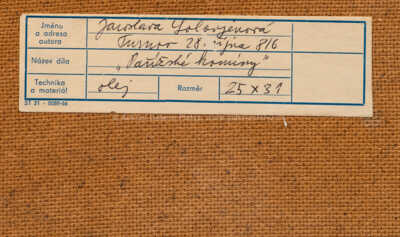 Jméno a adresa autora Jaroslava
Turnov 28. října 816
Název díla „Pařížské komíny"
Technika a materiál olej Rozměr 25 x 31
ST 31 - 0089-66